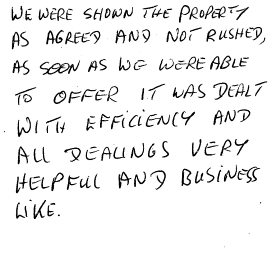 WE WERE SHOWN THE PROPERTY
AS AGREED AND NOT RUSHED,
AS SOON AS WE WERE ABLE
TO OFFER IT WAS DEALT
WITH EFFICIENCY AND
ALL DEALINGS VERY
HELPFUL AND BUSINESS
LIKE.